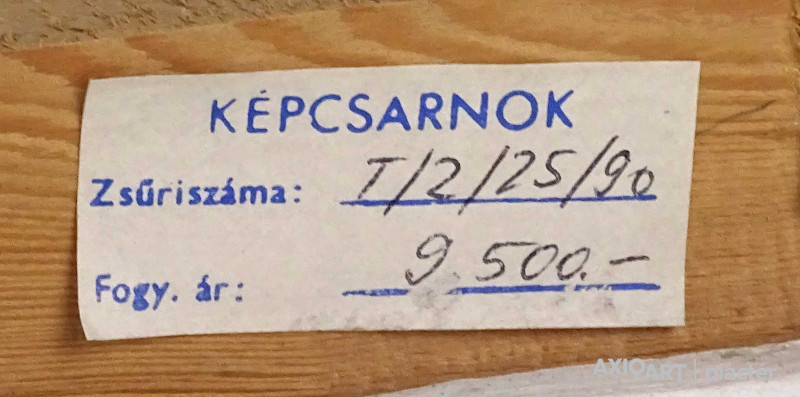 KÉPCSARNOK
Zsűriszáma: T/2/25/90
Fogy. ár: 9.500.-
AXIOART